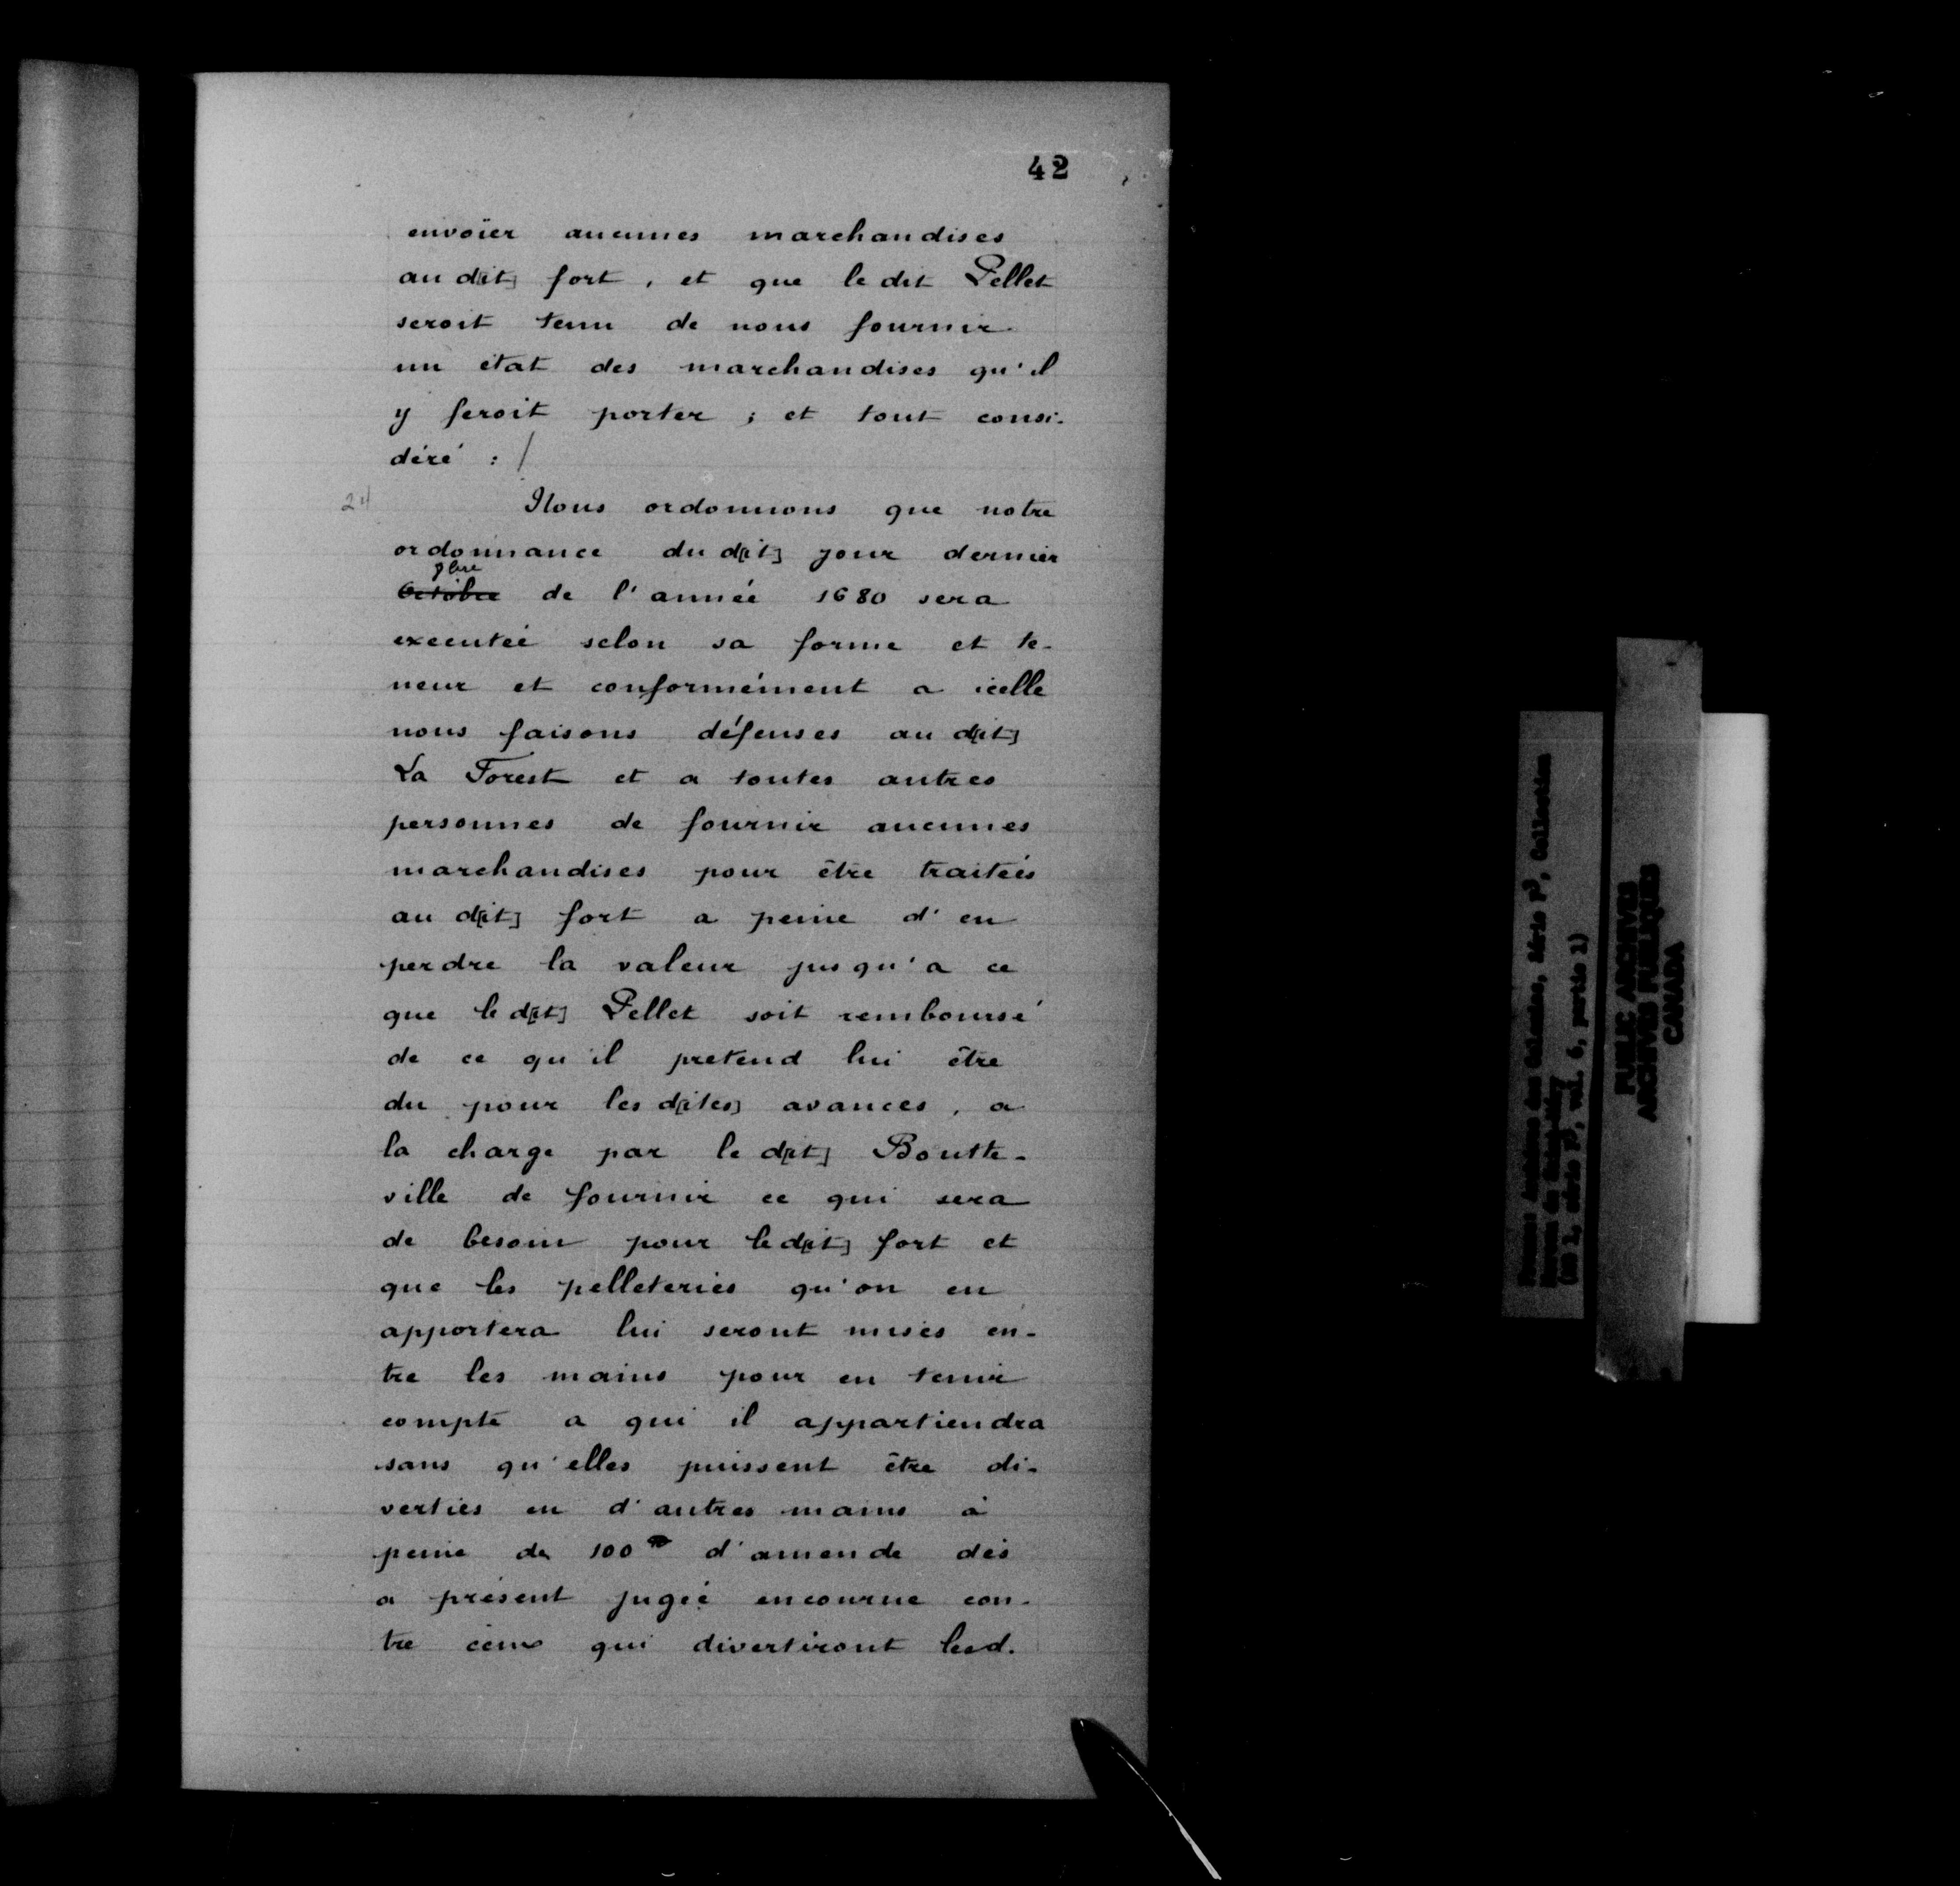 42
envoïer aucunes marchandises
au d[it] fort, et que le dit Pellet
seroit tenu de nous fournir
un état des marchandises qu'il
y feroit porter ; et tout consi-
déré : /
24
Nous ordonnons que notre
ordonnance du d[it] jour dernier
8bre
Octobre de l'année 1680 sera
executée selon sa forme et te-
neur et conformément a icelle
nous faisons défenses au d[it]
La Forest et a toutes autres
personnes de fournir aucunes
marchandises pour être traitées
au d[it] fort a peine d'en
perdre la valeur jusqu'a ce
que le d[it] Pellet soit remboursé
de ce qu'il pretend lui être
du pour les d[ites] avances, a
la charge par le d[it] Boutte-
ville de fournir ce qui sera
de besoin pour le d[it] fort et
que les pelleteries qu'on en
apportera lui seront mises en-
tre les mains pour en tenir
compte a qui il appartiendra
sans qu'elles puissent être di-
verties en d'autres mains à
peine de 100 d'amende dès
a présent jugée encourue con-
tre ceux qui divertiront lesd.
France: Archives des Colonies, Série F³, Collection
Moreau de Saint-Méry
(MG 1, série F³, vol. 6, partie 1)
PUBLIC ARCHIVES
ARCHIVES PUBLIQUES
CANADA